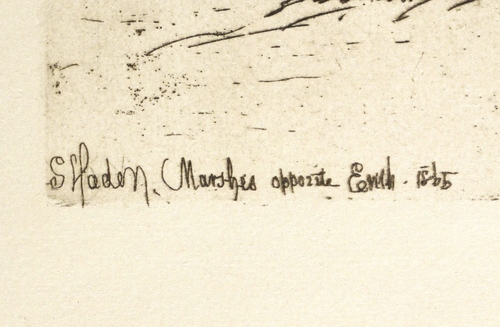 S Haden. Marshes opposite Erith. 1865